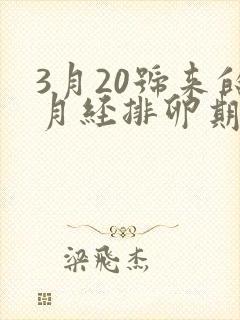 3月20號来的
月经排卵期
梁飛杰